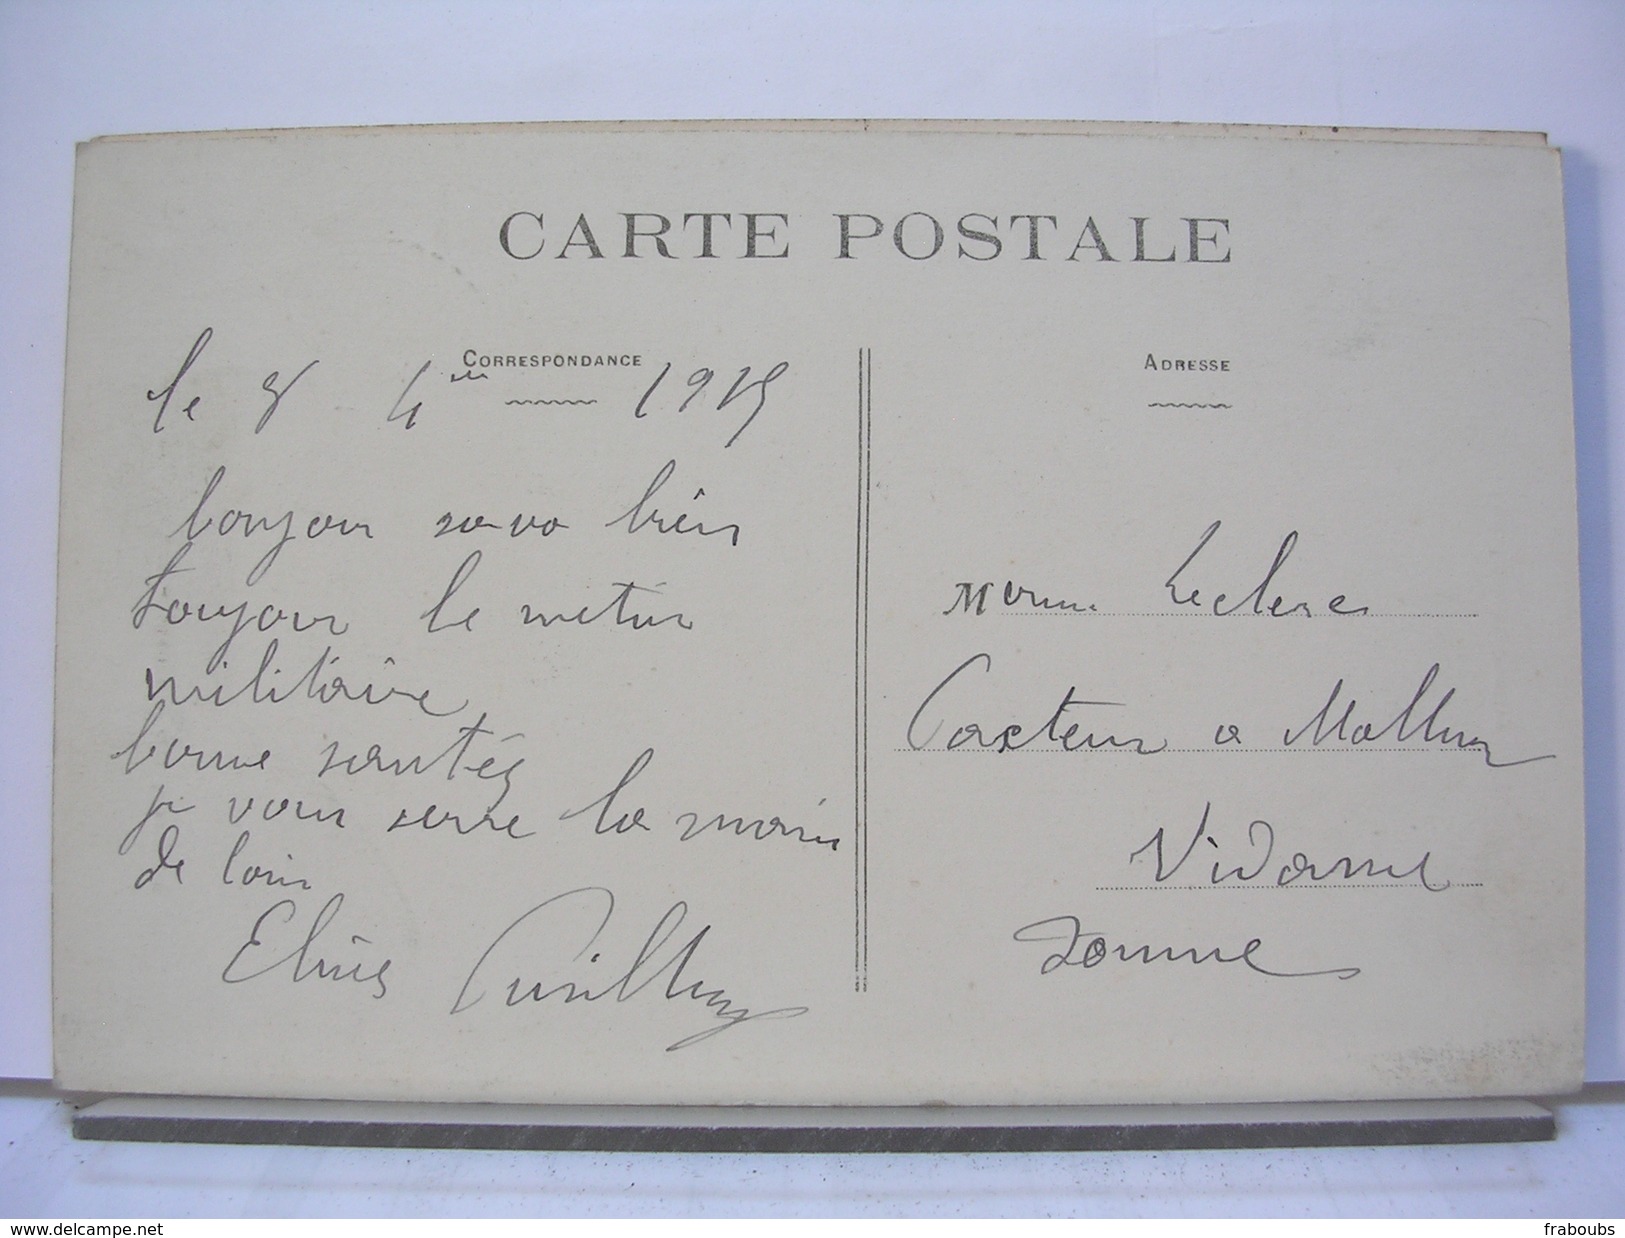 CARTE POSTALE
CORRESPONDANCE
le 8 4 1915
bonjour sa va bien
toujour le metier
militaire
bonne santés
je vous serre la main
de loin
ADRESSE
Leclerc
Facteur a Mailly
Vidame
Somme
delcampe.net
fraboubs